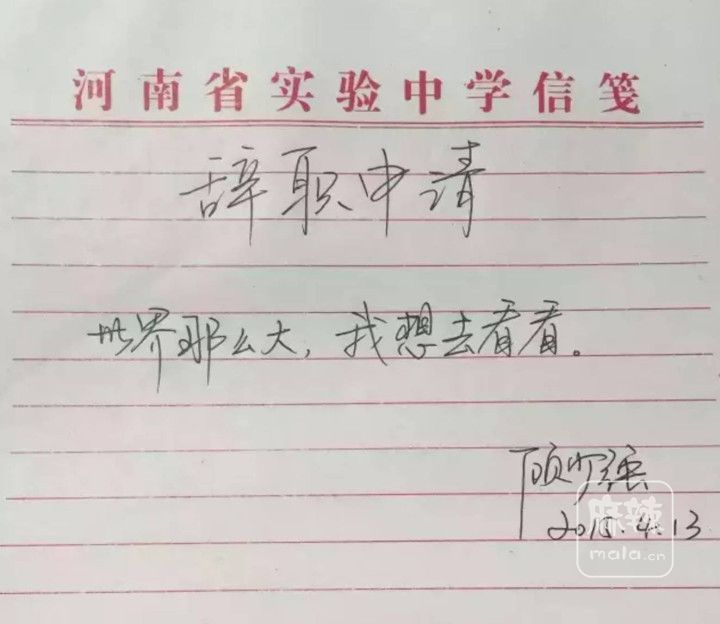 河南省实验中学信笺
辞职申请
世界那么大，我想去看看。
顾少强
2015.4.13
麻辣
mala.cn